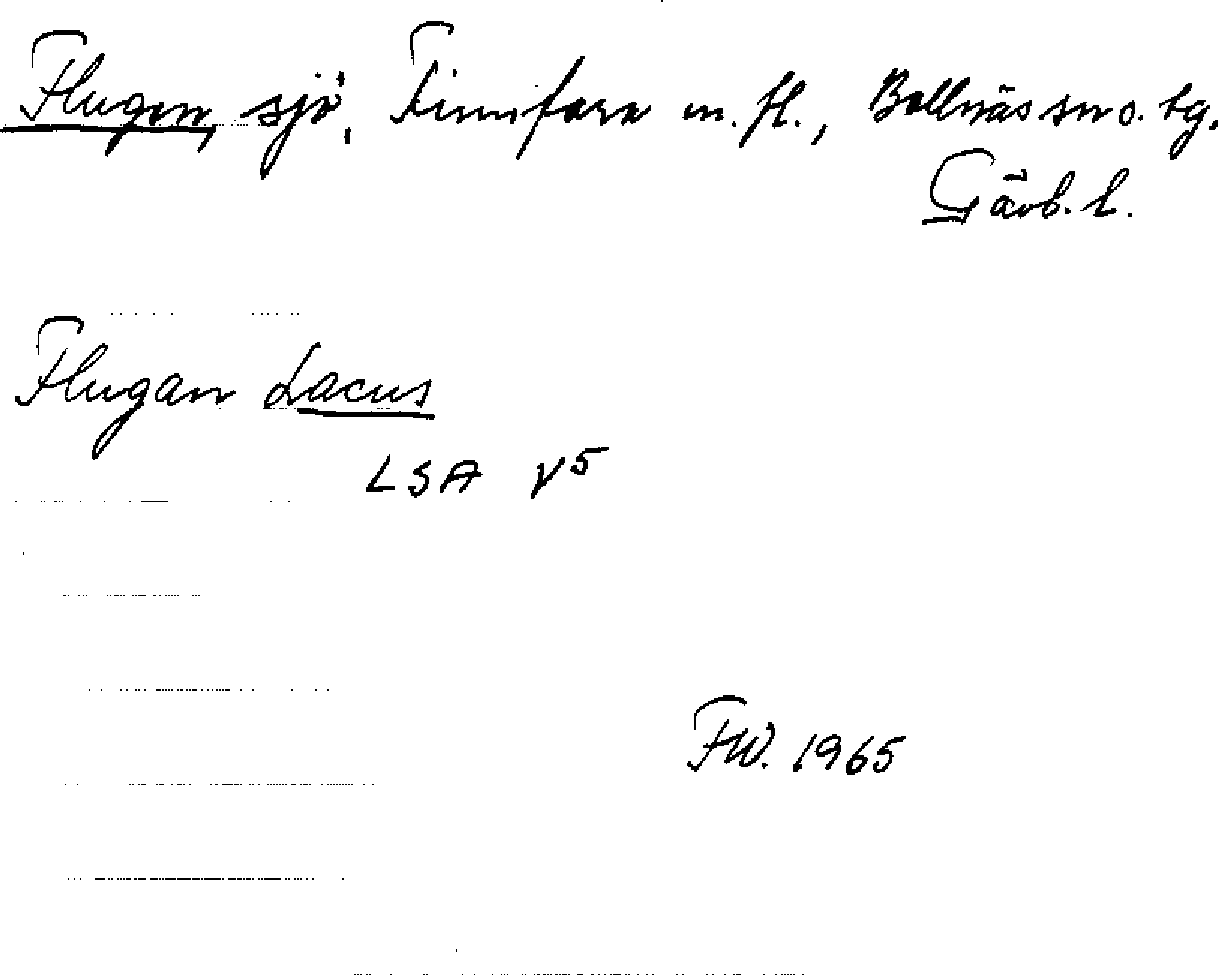 Flugen, sjö, Finnfara m. fl., Bollnäs sn o. tg.
Gävb. l.
Flugan Lacus
LSA V5
FW. 1965